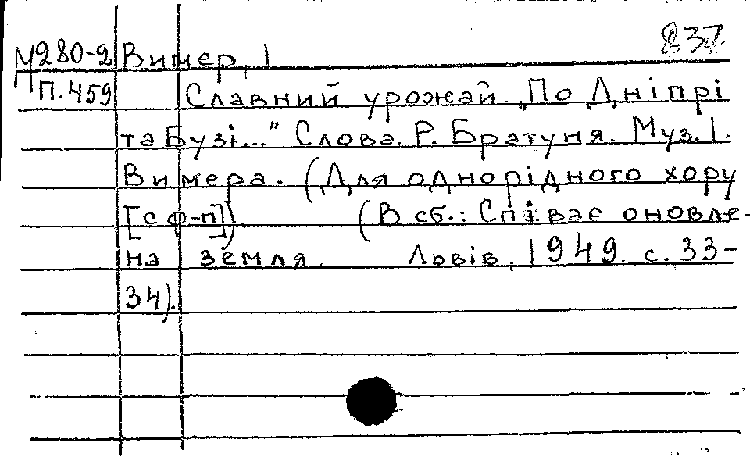 837
М280-2 Вимер, І
П.459 Славний урожай. „По Дніпрі
та Бузі..." Слова. Р. Братуня. Муз. І.
Вимера. (Для однорідного хору
[с ф-п]) (В сб.: Співає оновле-
на земля. Львів, 1949. с. 33-
34).